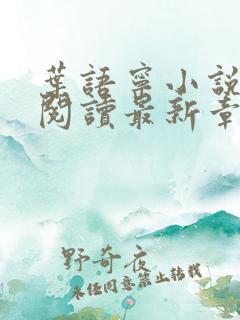 葉語寧小說
閱讀最新章
野奇夜
未經同意禁止轉載